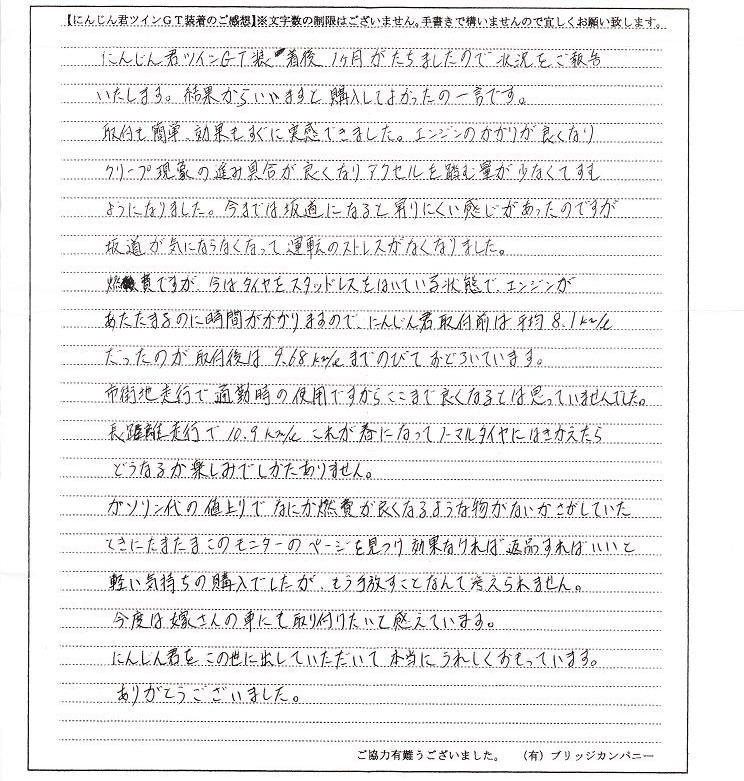 【にんじん君ツインＧＴ装着のご感想】※文字数の制限はございません。手書きで構いませんので宜しくお願い致します。
にんじん君ツインＧＴ装着後 1ヶ月がたちましたので 状況をご報告
いたします。結果からいいますと購入してよかったの一言です。
取付も簡単、効果もすぐに実感できました。エンジンのかかりが良くなり
クリープ現象の進み具合が良くなりアクセルを踏む量が少なくてすむ
ようになりました。今までは坂道になると昇りにくい感じがあったのですが
坂道が気にならなくなって運転のストレスがなくなりました。
燃費ですが、今はタイヤをスタッドレスをはいている状態で、エンジンが
あたたまるのに時間がかかりますので、にんじん君取付前は平均8.1km/ℓ
だったのが取付後は 9.68km/ℓまでのびておどろいています。
市街地走行で通勤時の使用ですからここまで良くなるとは思っていませんでした。
長距離走行で10.9km/ℓ これが春になってノーマルタイヤにはきかえたら
どうなるか楽しみでしかたありません。
ガソリン代の値上りでなにか燃費が良くなるような物がないかさがしていた
ときにたまたまこのモニターのページを見つけ効果なければ返品すればいいと
軽い気持ちの購入でしたが、もう手放すことなんて考えられません。
今度は嫁さんの車にも取り付けたいと考えています。
にんじん君をこの世に出していただいて本当にうれしくおもっています。
ありがとうございました。
ご協力有難うございました。 （有）ブリッジカンパニー